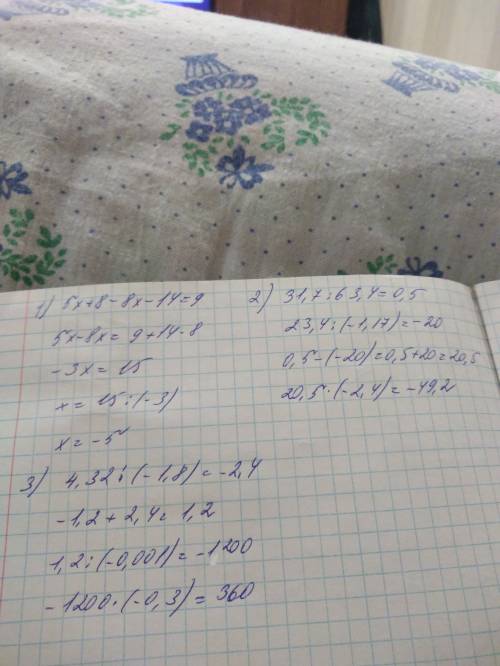 1) 5x+8-8x-14=9
5x-8x=9+14-8
-3x=15
x=15:(-3)
x=-5
2) 31,7:63,4=0,5
23,4:(-1,17)=-20
0,5-(-20)=0,5+20=20,5
20,5·(-2,4)=-49,2
3) 4,32:(-1,8)=-2,4
-1,2+2,4=1,2
1,2:(-0,001)=-1200
-1200·(-0,3)=360